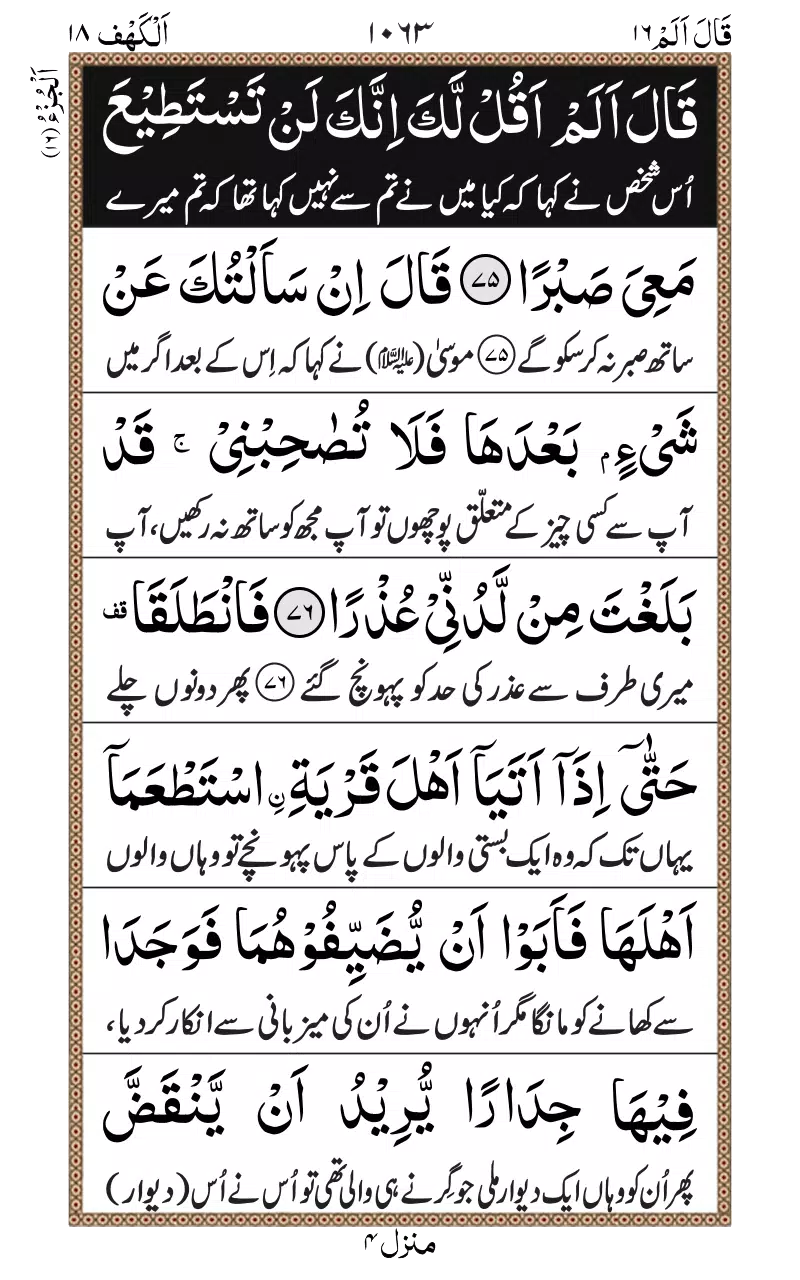 قَالَ اَلَمْ ١٦ ١٠٦٣ اَلْكَهْف ١٨
اَلْجُزْءُ (١٦)
قَالَ اَلَمْ اَقُلْ لَّكَ اِنَّكَ لَنْ تَسْتَطِيْعَ
اُس شخص نے کہا کہ کیا میں نے تم سے نہیں کہا تھا کہ تم میرے
مَعِيَ صَبْرًا ﴿۷۵﴾ قَالَ اِنْ سَاَلْتُكَ عَنْ
ساتھ صبر نہ کر سکو گے ﴿۷۵﴾ موسیٰ (علیہ السلام) نے کہا کہ اِس کے بعد اگر میں
شَيْءٍۭ بَعْدَهَا فَلَا تُصٰحِبْنِيْ ۚ قَدْ
آپ سے کسی چیز کے متعلّق پوچھوں تو آپ مجھ کو ساتھ نہ رکھیں، آپ
بَلَغْتَ مِنْ لَّدُنِّيْ عُذْرًا ﴿۷۶﴾ فَانْطَلَقَا قف
میری طرف سے عذر کی حد کو پہونچ گئے ﴿۷۶﴾ پھر دونوں چلے
حَتّٰٓى اِذَآ اَتَيَآ اَهْلَ قَرْيَةِ نِ اسْتَطْعَمَآ
یہاں تک کہ وہ ایک بستی والوں کے پاس پہونچے تو وہاں والوں
اَهْلَهَا فَاَبَوْا اَنْ يُّضَيِّفُوْهُمَا فَوَجَدَا
سے کھانے کو مانگا مگر اُنہوں نے اُن کی میزبانی سے انکار کر دیا،
فِيْهَا جِدَارًا يُّرِيْدُ اَنْ يَّنْقَضَّ
پھر اُن کو وہاں ایک دیوار ملی جو گِرنے ہی والی تھی تو اُس نے اُس (دیوار)
منزل ۴